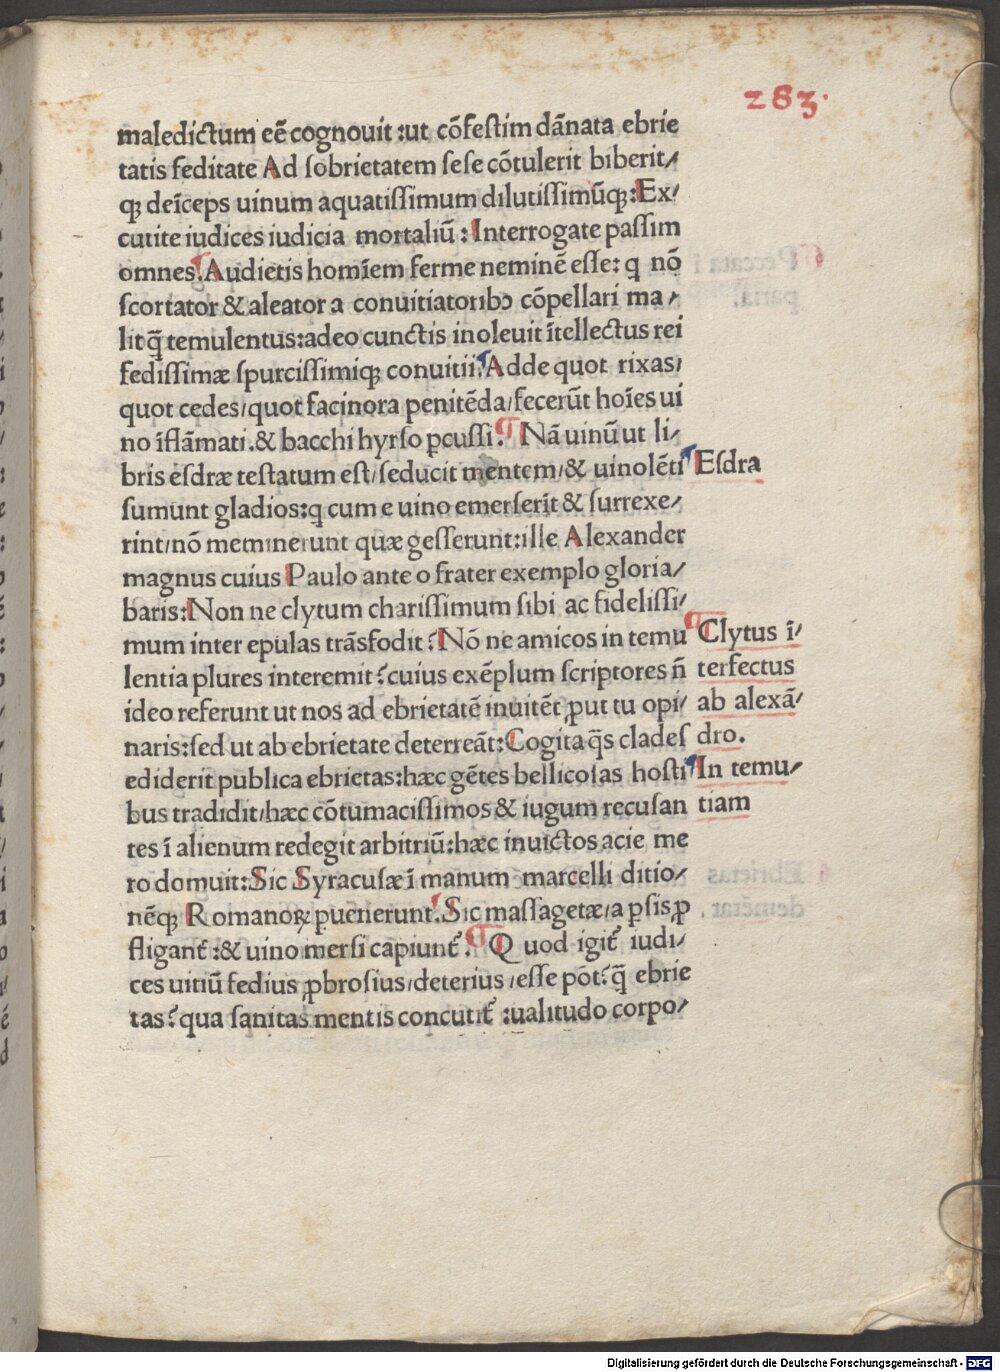 283.
maledictum eē cognouit :ut cōfeſtim dānata ebrie
tatis feditate Ad ſobrietatem ſeſe cōtulerit biberit/
qꝫ deīceps uinum aquatiſſimum dilutiſſimūqꝫ:Ex/
cutite iudices iudicia mortaliū : Interrogate paſſim
omnes. Audietis homīem ferme neminē eſſe: q nō
ſcortator & aleator a conuitiatoribꝰ cōpellari ma/
lit q̄ temulentus:adeo cunctis inoleuit ītellectus rei
fediſſimæ ſpurciſſimiqꝫ conuitii. Adde quot rixas/
quot cedes/quot facinora penitēda/fecerūt hoīes ui
no īflāmati.& bacchi hyrſo ꝑcuſſi. Nā uinū ut li/
bris eſdræ teſtatum eſt/ſeducit mentem/& uinolēti
ſumunt gladios:q cum e uino emerſerīt & ſurrexe/
rint/nō meminerunt quæ geſſerunt:ille Alexander
magnus cuius Paulo ante o frater exemplo gloria/
baris:Non ne clytum chariſſimum ſibi ac fideliſſi/
mum inter epulas trāsfodit? Nō ne amicos in temu
lentia plures interemit?cuius exēplum ſcriptores n̄
ideo referunt ut nos ad ebrietatē inuitēt ꝓut tu opi/
naris:ſed ut ab ebrietate deterreāt:Cogita q̄s cladeſ
ediderit publica ebrietas:hæc gētes bellicoſas hoſti
bus tradidit/hæc cōtumaciſſimos & iugum recuſan
tes ī alienum redegit arbitriū:hæc inuictos acie me
ro domuit:Sic Syracuſæ ī manum marcelli ditio/
nēqꝫ Romanoꝝ puenerunt. Sic maſſagetæ/a ꝑſis ꝓ
fligant̄ :& uino merſi capiunt̄. Quod igit̄ iudi/
ces uitiū fedius ꝓbroſius/deterius/eſſe pōt? q̄ ebrie
tas? qua ſanitas mentis concutit̄ :ualitudo corpo/
Eſdra
Clytus ī/
terfectus
ab alexā/
dro.
In temu/
tiam
Digitalisierung gefördert durch die Deutsche Forschungsgemeinschaft - DFG